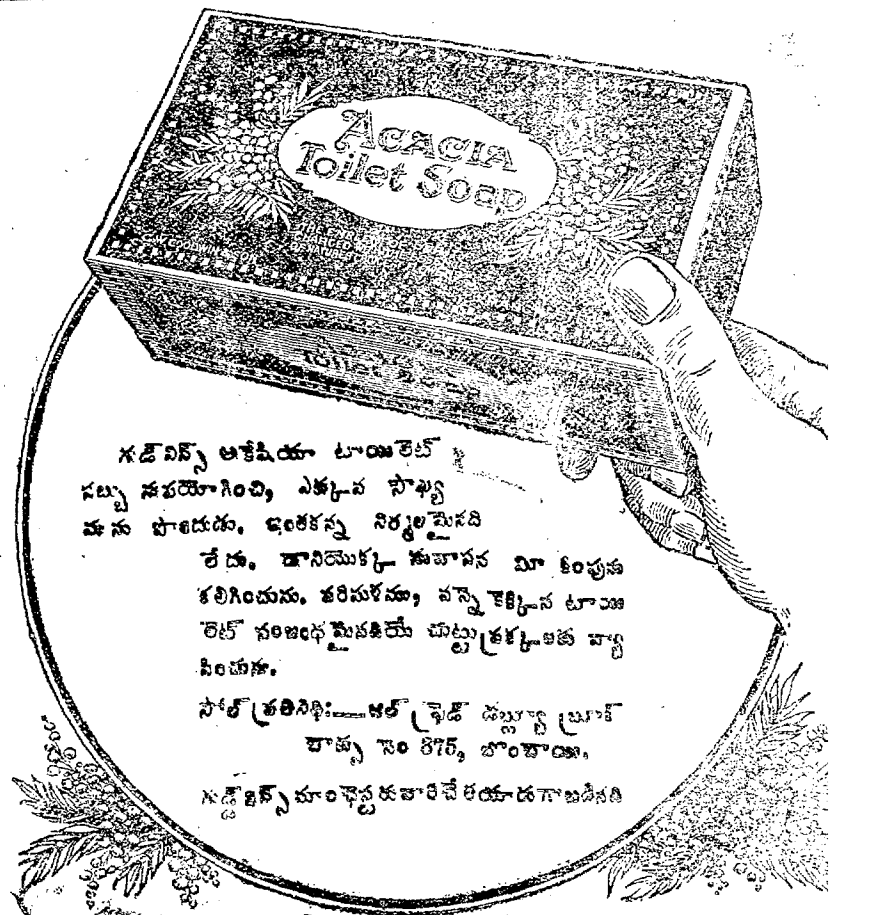 ACACIA
Toilet Soap
గుడ్ విన్స్ అకేషియా టాయిలెట్
సబ్బు నుపయోగించి, ఎక్కువ సౌఖ్య
మును పొందుడు. ఇంతకన్న నిర్మలమైనది
లేదు. దానియొక్క సువాసన మీ కింపును
కలిగించును. పరిమళము, వన్నె కెక్కిన టాయి
లెట్ సంబంధమైనదియే చుట్టుప్రక్కలకు వ్యా
పించును.
సోల్ ప్రతినిధి:— ఆల్ ఫ్రెడ్ డబ్ల్యూ బ్రూక్
బాక్సు నెం 875, బొంబాయి.
గుడ్ విన్స్ మాంచెస్టరువారిచే తయారుగాబడినది